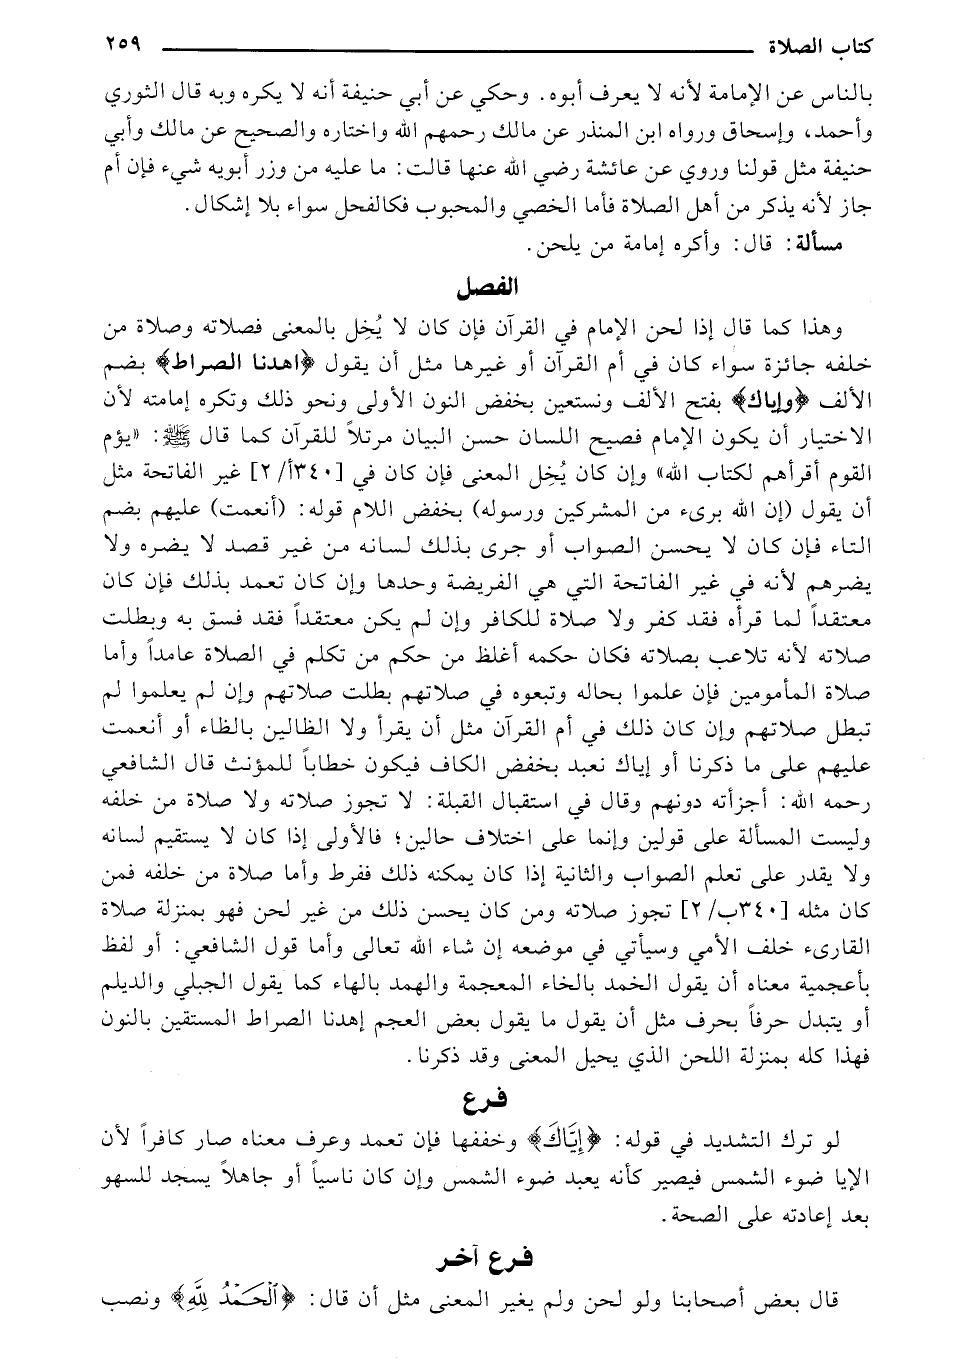 كتاب الصلاة ٢٥٩
بالناس عن الإمامة لأنه لا يعرف أبوه. وحكي عن أبي حنيفة أنه لا يكره وبه قال الثوري
وأحمد، وإسحاق ورواه ابن المنذر عن مالك رحمهم الله واختاره والصحيح عن مالك وأبي
حنيفة مثل قولنا وروي عن عائشة رضي الله عنها قالت: ما عليه من وزر أبويه شيء فإن أم
جاز لأنه يذكر من أهل الصلاة فأما الخصي والمحبوب فكالفحل سواء بلا إشكال.
مسألة: قال: وأكره إمامة من يلحن.
الفصل
وهذا كما قال إذا لحن الإمام في القرآن فإن كان لا يُخِل بالمعنى فصلاته وصلاة من
خلفه جائزة سواء كان في أم القرآن أو غيرها مثل أن يقول ﴿اهدنا الصراط﴾ بضم
الألف ﴿وإياك﴾ بفتح الألف ونستعين بخفض النون الأولى ونحو ذلك وتكره إمامته لأن
الاختيار أن يكون الإمام فصيح اللسان حسن البيان مرتلاً للقرآن كما قال ﷺ: «يؤم
القوم أقرأهم لكتاب الله» وإن كان يُخِل المعنى فإن كان في [٣٤٠أ/٢] غير الفاتحة مثل
أن يقول (إن الله برىء من المشركين ورسوله) بخفض اللام قوله: (أنعمت) عليهم بضم
التاء فإن كان لا يحسن الصواب أو جرى بذلك لسانه من غير قصد لا يضره ولا
يضرهم لأنه في غير الفاتحة التي هي الفريضة وحدها وإن كان تعمد بذلك فإن كان
معتقداً لما قرأه فقد كفر ولا صلاة للكافر وإن لم يكن معتقداً فقد فسق به وبطلت
صلاته لأنه تلاعب بصلاته فكان حكمه أغلظ من حكم من تكلم في الصلاة عامداً وأما
صلاة المأمومين فإن علموا بحاله وتبعوه في صلاتهم بطلت صلاتهم وإن لم يعلموا لم
تبطل صلاتهم وإن كان ذلك في أم القرآن مثل أن يقرأ ولا الظالين بالظاء أو أنعمت
عليهم على ما ذكرنا أو إياك نعبد بخفض الكاف فيكون خطاباً للمؤنث قال الشافعي
رحمه الله: أجزأته دونهم وقال في استقبال القبلة: لا تجوز صلاته ولا صلاة من خلفه
وليست المسألة على قولين وإنما على اختلاف حالين؛ فالأولى إذا كان لا يستقيم لسانه
ولا يقدر على تعلم الصواب والثانية إذا كان يمكنه ذلك ففرط وأما صلاة من خلفه فمن
كان مثله [٣٤٠ب/٢] تجوز صلاته ومن كان يحسن ذلك من غير لحن فهو بمنزلة صلاة
القارىء خلف الأمي وسيأتي في موضعه إن شاء الله تعالى وأما قول الشافعي: أو لفظ
بأعجمية معناه أن يقول الخمد بالخاء المعجمة والهمد بالهاء كما يقول الجبلي والديلم
أو يتبدل حرفاً بحرف مثل أن يقول ما يقول بعض العجم إهدنا الصراط المستقين بالنون
فهذا كله بمنزلة اللحن الذي يحيل المعنى وقد ذكرنا.
فرع
لو ترك التشديد في قوله: ﴿إِيَّاكَ﴾ وخففها فإن تعمد وعرف معناه صار كافراً لأن
الإيا ضوء الشمس فيصير كأنه يعبد ضوء الشمس وإن كان ناسياً أو جاهلاً يسجد للسهو
بعد إعادته على الصحة.
فرع آخر
قال بعض أصحابنا ولو لحن ولم يغير المعنى مثل أن قال: ﴿ٱلْحَمْدُ لِلَّهِ﴾ ونصب